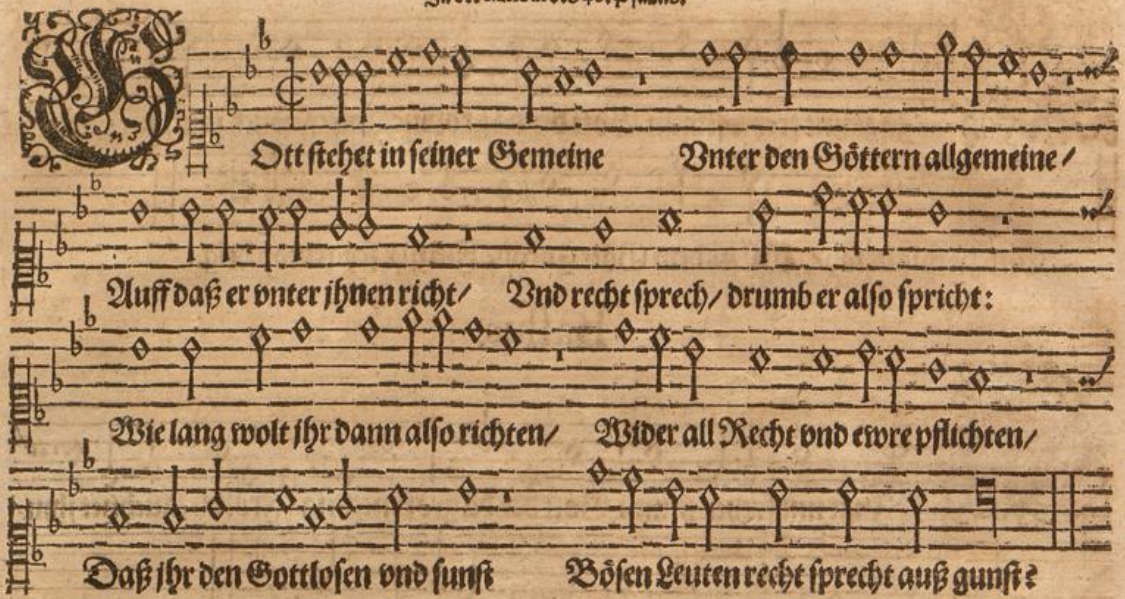 GOtt stehet in seiner Gemeine Vnter den Göttern allgemeine /
Auff daß er vnter jhnen richt / Vnd recht sprech / drumb er also spricht :
Wie lang wolt jhr dann also richten / Wider all Recht vnd ewre pflichten /
Daß jhr den Gottlosen vnd sunst Bösen Leuten recht sprecht auß gunst ?